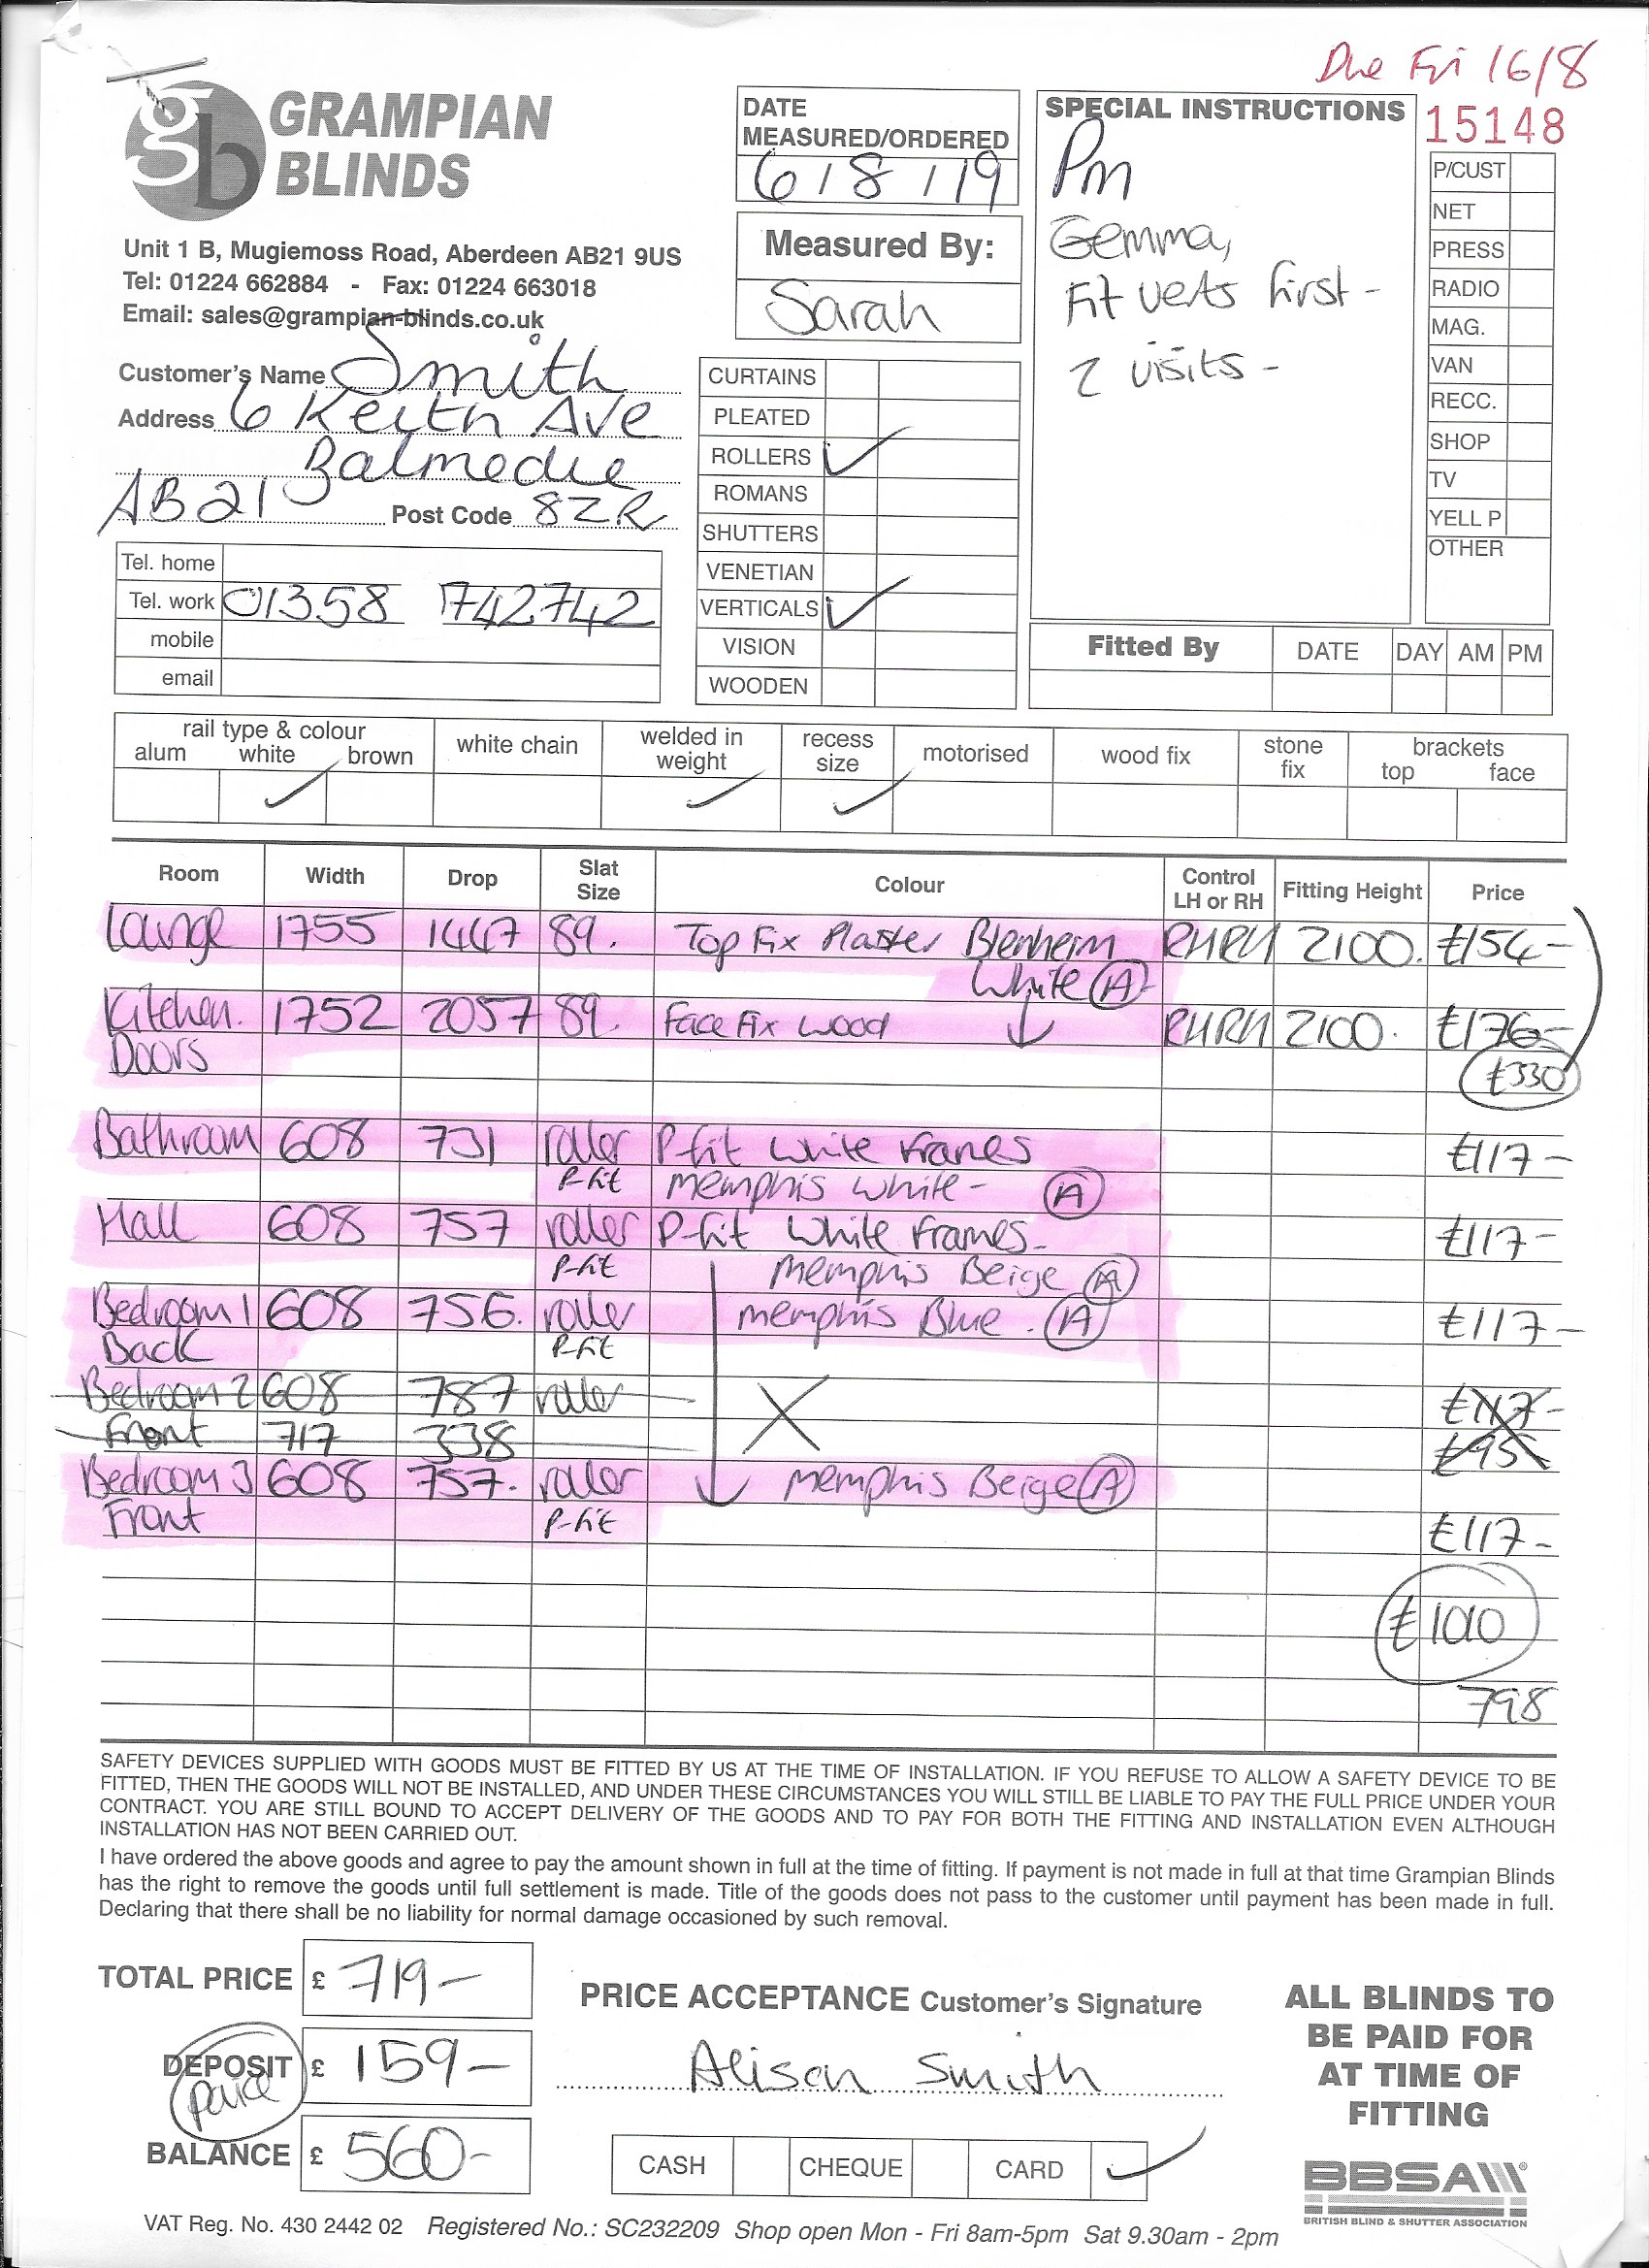 Due Fri 16/8
GRAMPIAN
BLINDS
Unit 1 B, Mugiemoss Road, Aberdeen AB21 9US
Tel: 01224 662884 - Fax: 01224 663018
Email: sales@grampian-blinds.co.uk
Customer's Name Smith
Address 6 Keith Ave
Balmedie
AB21 Post Code 8ZR
Tel. home
Tel. work 01358 742742
mobile
email
DATE
MEASURED/ORDERED
6/8/19
Measured By:
Sarah
CURTAINS
PLEATED
ROLLERS ✓
ROMANS
SHUTTERS
VENETIAN
VERTICALS ✓
VISION
WOODEN
SPECIAL INSTRUCTIONS
Pm
Gemma,
Fit verts first -
2 visits -
15148
P/CUST
NET
PRESS
RADIO
MAG.
VAN
RECC.
SHOP
TV
YELL P
OTHER
Fitted By DATE DAY AM PM
rail type & colour white chain welded in weight recess size motorised wood fix stone fix brackets
alum white brown top face
✓ ✓ ✓
Room Width Drop Slat Size Colour Control LH or RH Fitting Height Price
Lounge 1755 1447 89. Top Fix Plaster Blenheim RHRH 2100. £154-
White (A)
Kitchen. 1752 2057 89. Face Fix Wood ↓ RHRH 2100. £176-
Doors £330
Bathroom 608 731 roller P-fit White Frames £117-
P-fit Memphis White- (A)
Hall 608 757 roller P-fit White Frames- £117-
P-fit Memphis Beige (A)
Bedroom 1 608 756. roller Memphis Blue. (A) £117-
Back P-fit
Bedroom 2 608 787 roller £117-
Front 717 338 X £95
Bedroom 3 608 757. roller Memphis Beige (A)
Front P-fit £117-
£1010
798
SAFETY DEVICES SUPPLIED WITH GOODS MUST BE FITTED BY US AT THE TIME OF INSTALLATION. IF YOU REFUSE TO ALLOW A SAFETY DEVICE TO BE
FITTED, THEN THE GOODS WILL NOT BE INSTALLED, AND UNDER THESE CIRCUMSTANCES YOU WILL STILL BE LIABLE TO PAY THE FULL PRICE UNDER YOUR
CONTRACT. YOU ARE STILL BOUND TO ACCEPT DELIVERY OF THE GOODS AND TO PAY FOR BOTH THE FITTING AND INSTALLATION EVEN ALTHOUGH
INSTALLATION HAS NOT BEEN CARRIED OUT.
I have ordered the above goods and agree to pay the amount shown in full at the time of fitting. If payment is not made in full at that time Grampian Blinds
has the right to remove the goods until full settlement is made. Title of the goods does not pass to the customer until payment has been made in full.
Declaring that there shall be no liability for normal damage occasioned by such removal.
TOTAL PRICE £ 719-
DEPOSIT £ 159-
paid
BALANCE £ 560-
PRICE ACCEPTANCE Customer's Signature
Alison Smith
CASH CHEQUE CARD ✓
ALL BLINDS TO
BE PAID FOR
AT TIME OF
FITTING
BBSA
BRITISH BLIND & SHUTTER ASSOCIATION
VAT Reg. No. 430 2442 02 Registered No.: SC232209 Shop open Mon - Fri 8am-5pm Sat 9.30am - 2pm